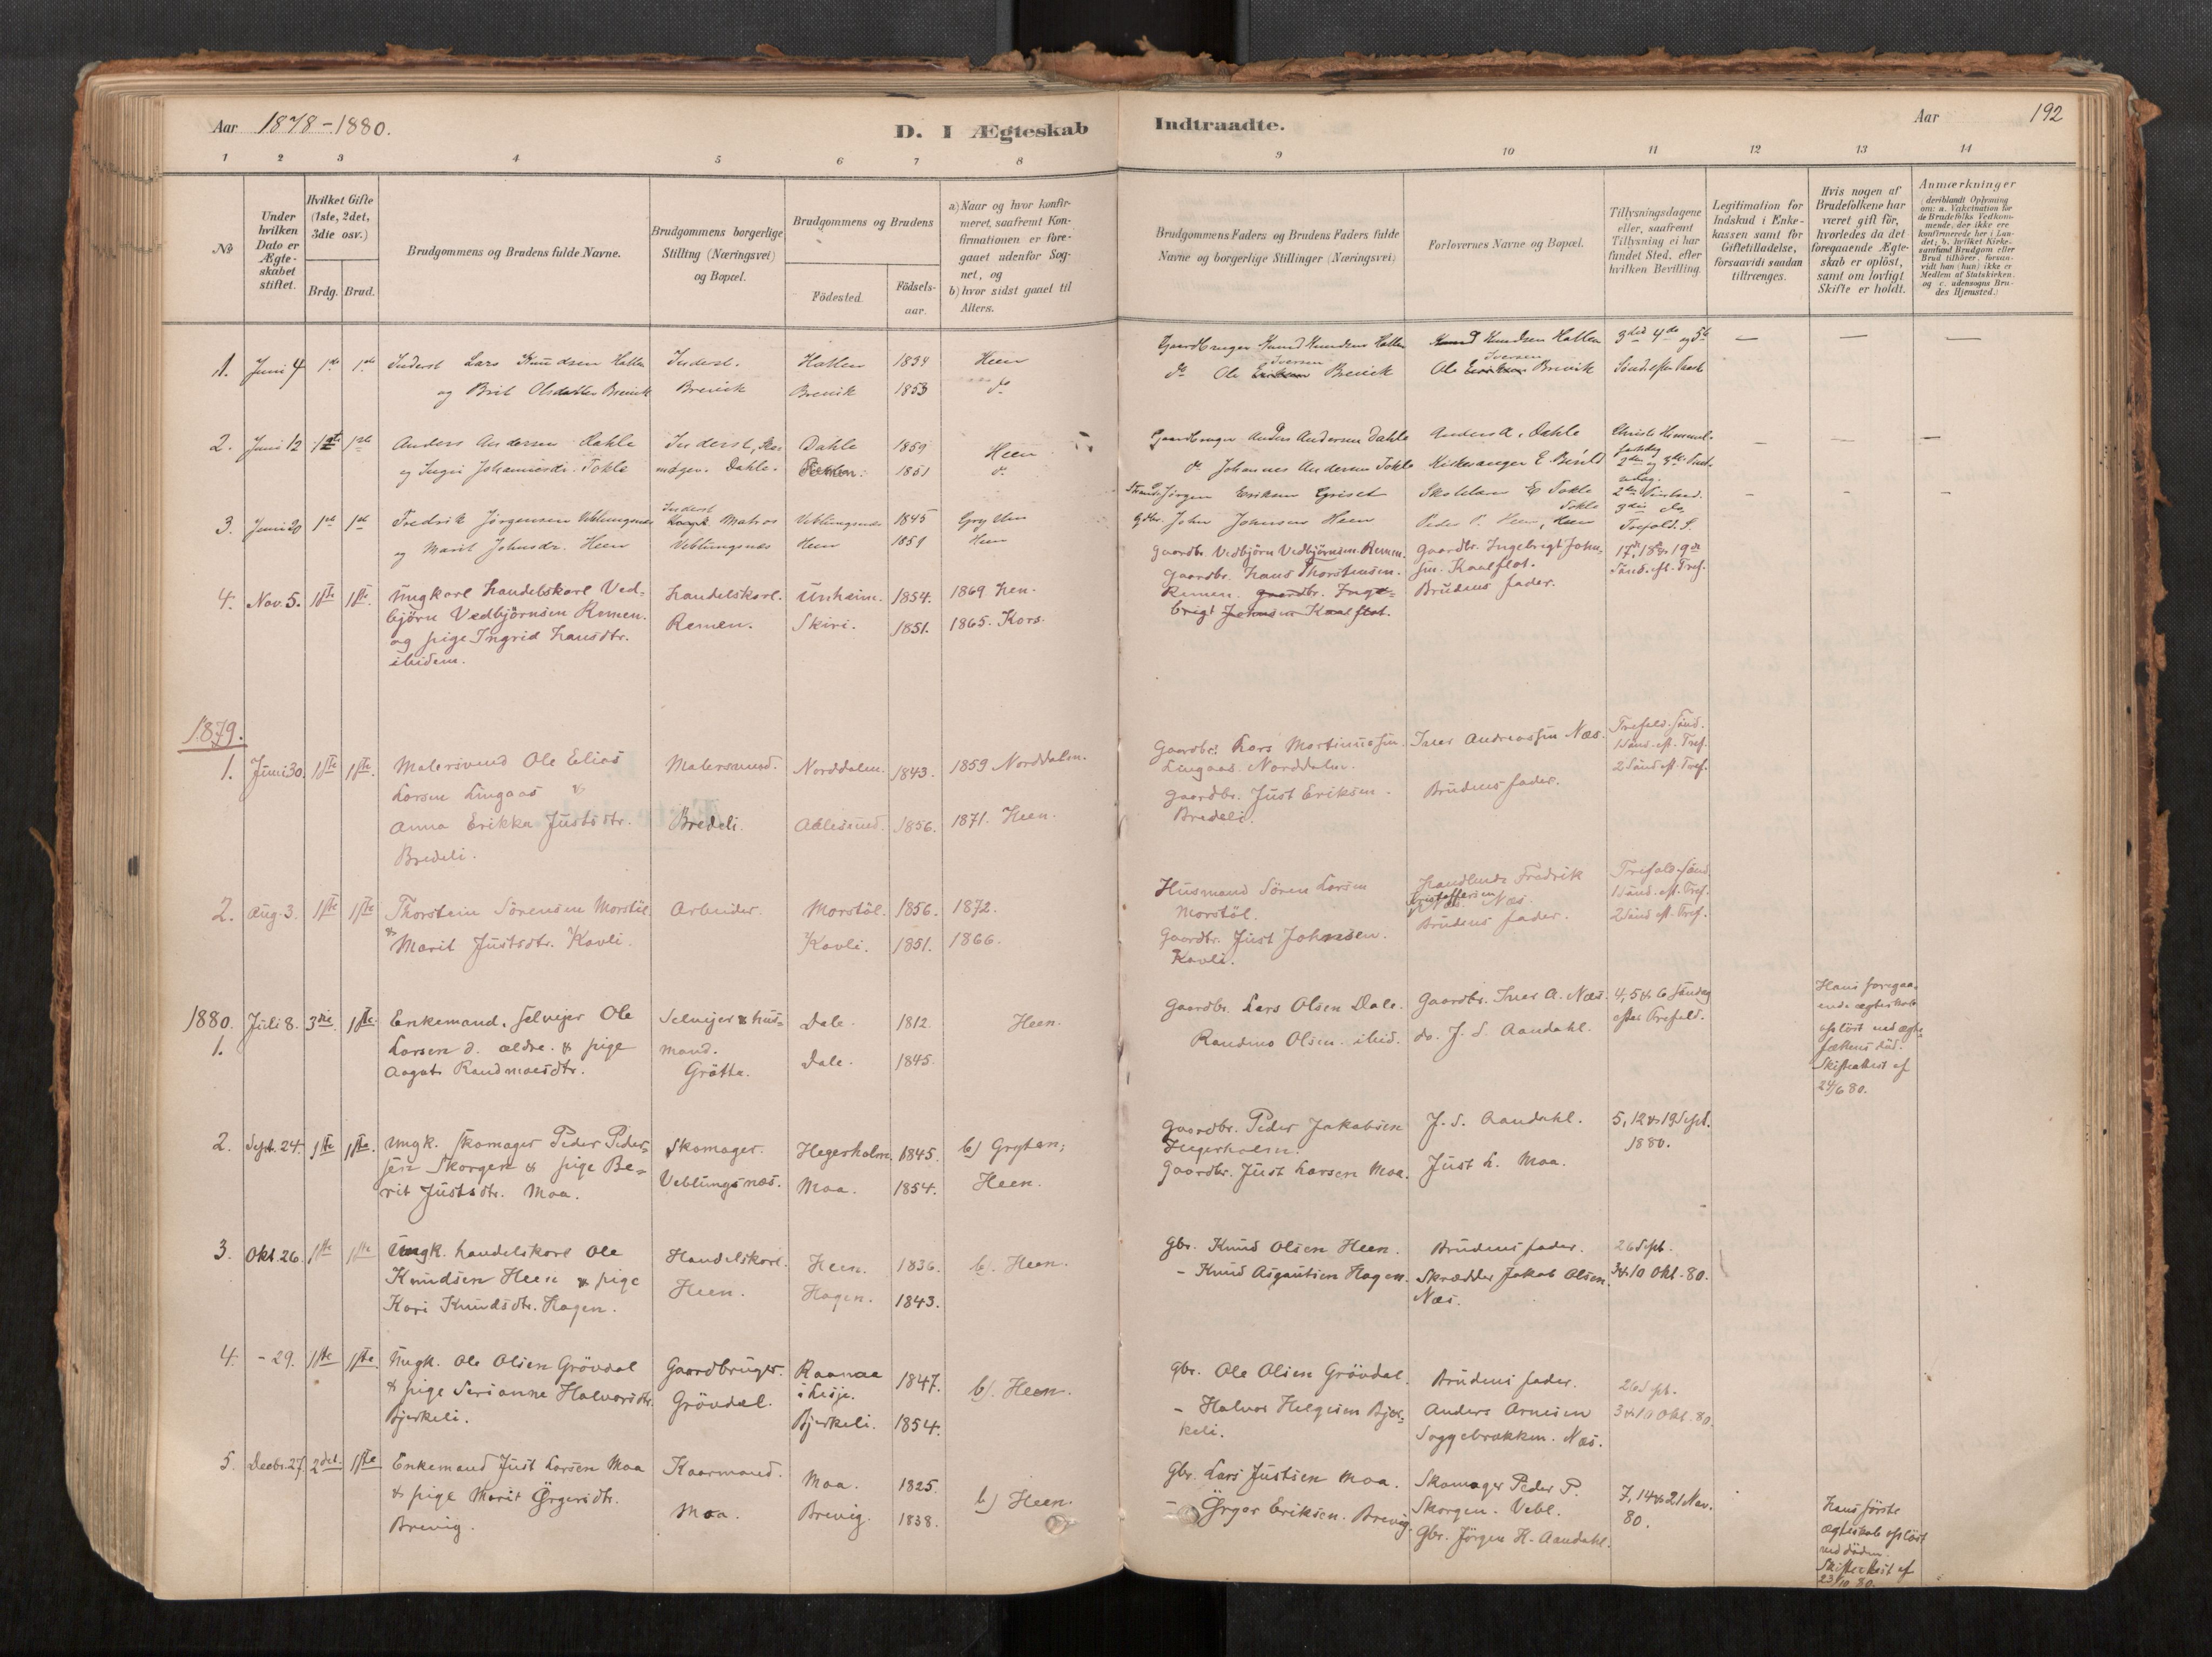 Aar 1878-1880.
D. I Ægteskab
Indtraadte.
Aar
192
1 2 3 4 5 6 7 8 9 10 11 12 13 14
No
Under hvilken Dato er Ægteskabet stiftet.
Hvilket Gifte (1ste, 2det, 3die osv.)
Brdg. Brud.
Brudgommens og Brudens fulde Navne.
Brudgommens borgerlige Stilling (Næringsvei) og Bopæl.
Brudgommens og Brudens
Födested.
Födselsaar.
a) Naar og hvor konfirmeret, saafremt Konfirmationen er foregaaet udenfor Sognet, og
b) hvor sidst gaaet til Alters.
Brudgommens Faders og Brudens Faders fulde Navne og borgerlige Stillinger (Næringsvei)
Forlovernes Navne og Bopæl.
Tillysningsdagene eller, saafremt Tillysning ei har fundet Sted, efter hvilken Bevilling.
Legitimation for Indskud i Enkekassen samt for Giftetilladelse, forsaavidt saadan tiltrænges.
Hvis nogen af Brudefolkene har været gift för, hvorledes da det foregaaende Ægteskab er oplöst, samt om lovligt Skifte er holdt.
Anmærkninger (deriblandt Oplysning om: a. Vakcination for de Brudefolks Vedkommende, der ikke ere konfirmerede her i Landet; b. hvilket Kirkesamfund Brudgom eller Brud tilhörer, forsaavidt han (hun) ikke er Medlem af Statskirken. og c. udensogns Brudes Hjemsted.)
1. Juni 4 1ste 1ste Inderst Lars Knudsen Hatten Inderst. Hatten 1834 Heen
og Brit Olsdatter Brevik Brevik Brevik 1853 do
Gaardbruger Knud Knudsen Hatten Knud Knudsen Hatten 3die 4de og 5te
do Ole Iversen Brevik Ole Iversen Brevik Sönd. efter Paask
2. Juni 12 1ste 1ste Anders Andersen Dahle Inderst, Dahle 1859 Heen
og Ingri Johannesdr. Tokle Dahle. 1851 do
Gaardbruger Anders Andersen Dahle Anders A. Dahle Christi Himmelfartsdag
do Johannes Andersen Tokle Kirkesanger E.
3. Juni 20 1ste 1ste Fredrik Jörgensen Veblungsnes Inderst Matros Veblungsnes 1845
og Marit Johnsdr. Heen Veblungsnæs Heen 1859 Heen
Jörgen Eriksen Griset E Tokle
Gdbr. John Johnsen Heen Peder P. Heen, Heen Trefold. S.
4. Nov. 5. 1ste 1ste. Ungkarl Handelskarl Ved-
björn Vedbjörnsen Remen.
og pige Ingrid Hansdtr.
ibidem.
Handelskarl. Unheim. 1854. 1869 Hen.
Remen. Skiri. 1851. 1865. Kors.
Gaardbr. Vedbjörn Vedbjörnsen Remen. Gaardbr. Ingebrigt John-
Gaardbr. Hans Thorstensen sen Kaalflot.
Remen. gaardbr. Inge- Brudens fader.
brigt Johnsen Kaalflot.
17de, 18de & 19de
Sönd. eft. Tref.
1879.
1. Juni 30. 1ste 1ste. Malersvend Ole Elias
Larsen Lingaas &
Anna Erikka Justsdtr.
Bredeli.
Malersvend. Norddalen. 1843. 1859 Norddalen.
Bredeli. Aalesund. 1856. 1871. Heen.
Gaardbr. Lars Martinussen Iver Andreassen Næs.
Lingaas. Norddalen.
Gaardbr. Just Eriksen Brudens fader.
Bredeli.
Trefold. sönd.
1 Sönd. eft. Tref.
2 Sönd. eft. Tref.
2. Aug. 3. 1ste 1ste Thorstein Sörensen Morstöl Arbeider. Morstöl. 1856. 1872.
& Marit Justsdtr. Kavli. Kavli. 1851. 1866.
Husmand Sören Larsen Handlende Fredrik
Morstöl. Kristoffersen Næs.
Gaardbr. Just Johnsen Brudens fader.
Kavli.
Trefold. sönd.
1 Sönd. eft. Tref.
2 Sönd. eft. Tref.
1880. Juli 8. 3die 1ste. Enkemand, selveier Ole
1. Larsen d. ældre. & pige
Aagot Randmoesdtr.
Selveier & hus-
mand.
Grötta.
Dale. 1812. Heen.
Dale. 1845.
Gaardbr. Lars Olsen Dale. Gaardbr. Iver A. Næs. 4, 5 & 6 söndag
Randmo Olsen ibid. do. J. S. Aandahl. efter Trefold.
Hans foregaa-
ende ægteskab
oplöst ved ægte-
fællens död.
Skifteattest af
24/6 80.
2. Sept. 24. 1ste 1ste. Ungk. skomager Peder Peder-
sen Skorgen & pige Be-
rit Justsdtr. Moa.
Skomager. Hegerholm. 1845. b) Gryten;
Veblungsnæs. Moa. 1854. Heen.
Gaardbr. Peder Jakobsen J. S. Aandahl. 5, 12 & 19 Sept.
Hegerholm. 1880.
Gaardbr. Just Larsen Moa. Just L. Moa.
3. Okt. 26. 1ste 1ste Ungk. handelskarl Ole
Knudsen Heen & pige
Kari Knudsdtr. Hagen.
Handelskarl. Heen. 1836. b). Heen.
Heen. Hagen. 1843.
Gbr. Knud Olsen Heen. Brudens fader. 26 Sept.
- Knud Asgautsen Hagen. Skrædder Jakob Olsen 3 & 10 Okt. 80.
Næs.
4. - 29. 1ste 1ste Ungk. Ole Olsen Grövdal
& pige Serianne Halvorsdtr.
Bjerkeli.
Gaardbruger. Raanaa
Grövdal. i Lesje. 1847. b). Heen.
Bjerkeli. 1854.
Gbr. Ole Olsen Grövdal. Brudens fader. 26 Sept.
- Halvor Helgesen Bjer- Anders Arnesen 3 & 10 Okt. 80.
keli. Soggebrækken. Næs.
5. Decbr. 27. 2det 1ste Enkemand Just Larsen Moa
& pige Marit Örgersdtr.
Brevig.
Kaarmand. Moa. 1825. b) Heen.
Moa. Brevig. 1838.
Gbr. Lars Justsen Moa. Skomager Peder P. 7, 14 & 21 Nov.
- Örger Eriksen. Brevig. Skorgen. Vebl. 80.
Gbr. Jörgen H. Aandahl.
Hans förste
ægteskab oplöst
ved döden.
Skifteattest af
23/10 80.